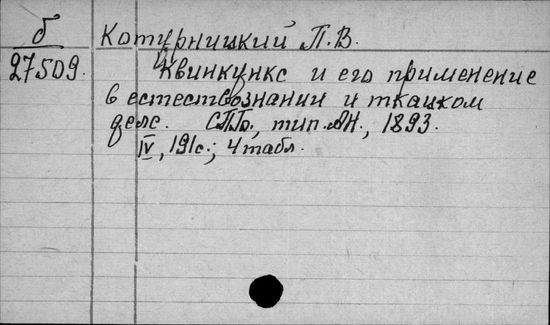 б Котурницкий П.В.
27509. Квинкункс и его применение
в естествознании и ткацком
деле. СПб., тип. АН., 1893.
IV, 191с.; 4 табл.